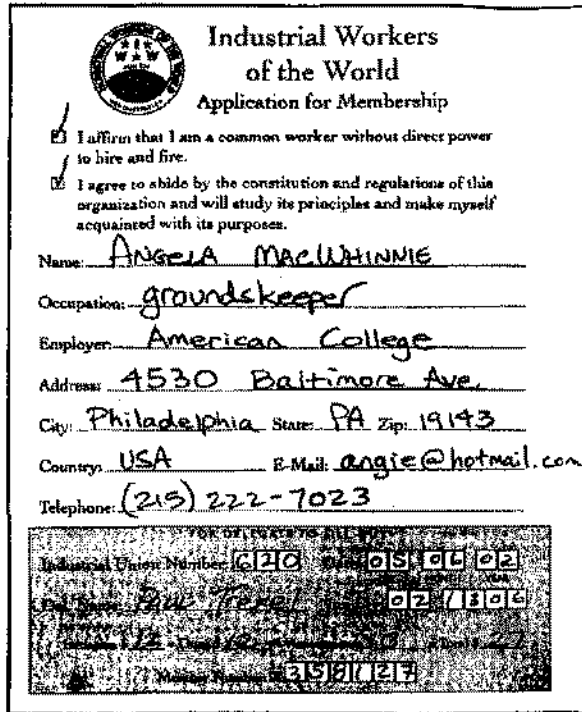 Industrial Workers
of the World
Application for Membership
I affirm that I am a common worker without direct power
to hire and fire.
I agree to abide by the constitution and regulations of this
organization and will study its principles and make myself
acquainted with its purposes.
Name: ANGELA MACWHINNIE
Occupation: groundskeeper
Employer: American College
Address: 4530 Baltimore Ave.
City: Philadelphia State: PA Zip: 19143
Country: USA E-Mail: angie@hotmail.com
Telephone: (215) 222-7023
FOR DELEGATE TO FILL OUT
Industrial Union Number 620 Date 05 06 02
YEAR
Del. Name:
Member Number 358127